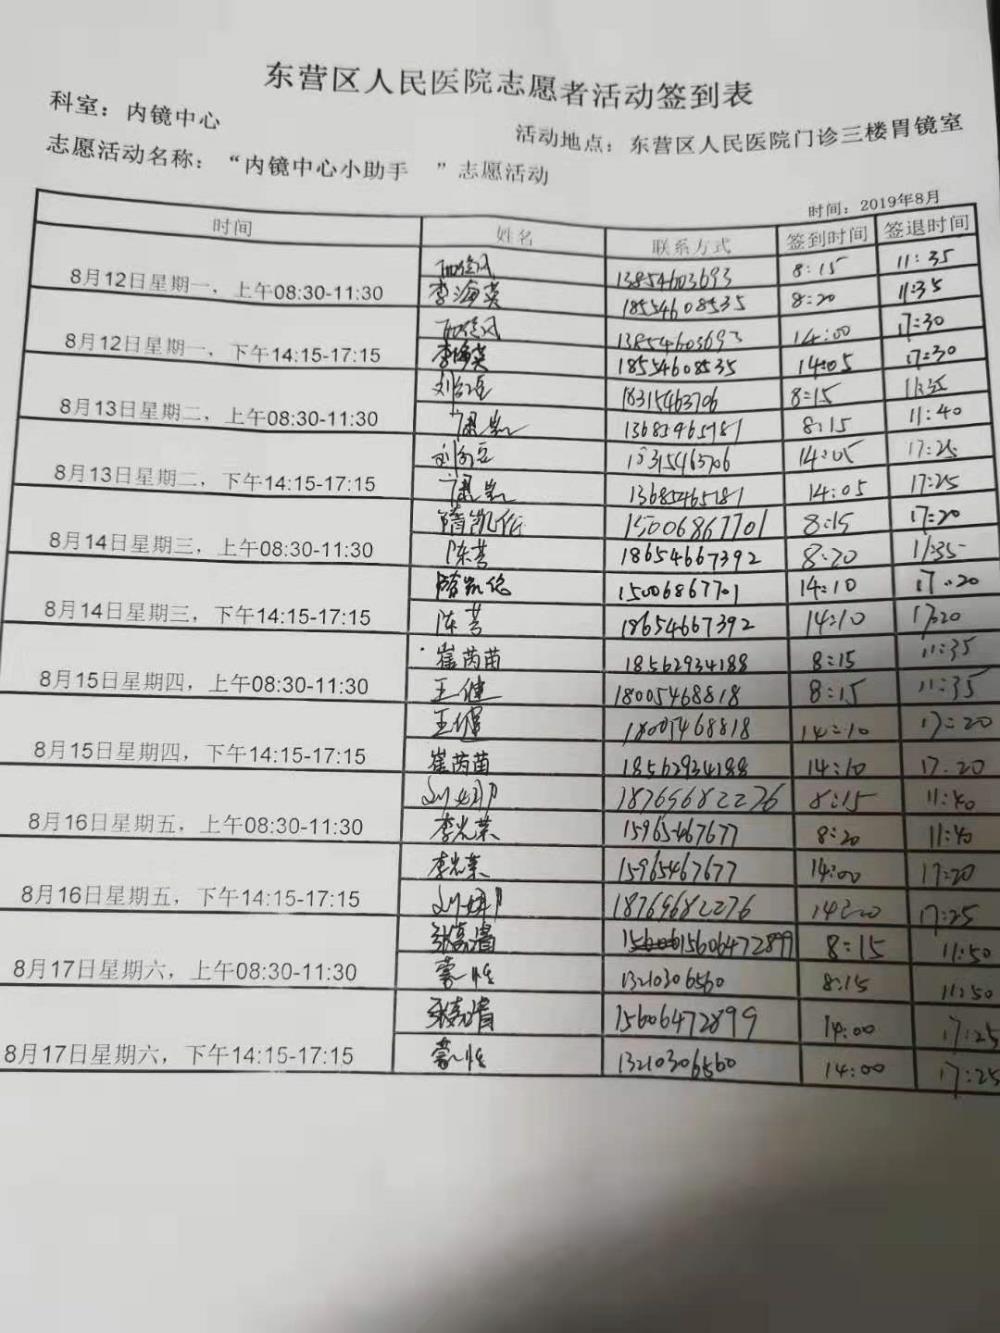 东营区人民医院志愿者活动签到表
科室：内镜中心
活动地点：东营区人民医院门诊三楼胃镜室
志愿活动名称：“内镜中心小助手 ”志愿活动
时间：2019年8月
时间 姓名 联系方式 签到时间 签退时间
8月12日星期一，上午08:30-11:30
13854603693 8:15 11:35
李海英 18554608535 8:20 11:35
8月12日星期一，下午14:15-17:15
13854603693 14:00 17:30
李海英 18554608535 14:05 17:30
8月13日星期二，上午08:30-11:30
18315463706 8:15 11:35
13685465181 8:15 11:40
8月13日星期二，下午14:15-17:15
18315463706 14:05 17:25
13685465181 14:05 17:25
8月14日星期三，上午08:30-11:30
隋凯 15006867701 8:15 17:20
陈芸 18654667392 8:20 11:35
8月14日星期三，下午14:15-17:15
隋凯 15006867701 14:10 17:20
陈芸 18654667392 14:10 17:20
8月15日星期四，上午08:30-11:30
崔芮苗 18562934188 8:15 11:35
王健 18005468818 8:15 11:35
8月15日星期四，下午14:15-17:15
王健 18005468818 14:10 17:20
崔芮苗 18562934188 14:10 17.20
8月16日星期五，上午08:30-11:30
18769682276 8:15 11:40
李光荣 15965467677 8:20 11:40
8月16日星期五，下午14:15-17:15
李光荣 15965467677 14:00 17:20
18769682276 14:00 17:25
8月17日星期六，上午08:30-11:30
15606472899 8:15 11:50
13210306560 8:15 11:50
8月17日星期六，下午14:15-17:15
15606472899 14:00 17:25
13210306560 14:00 17:25